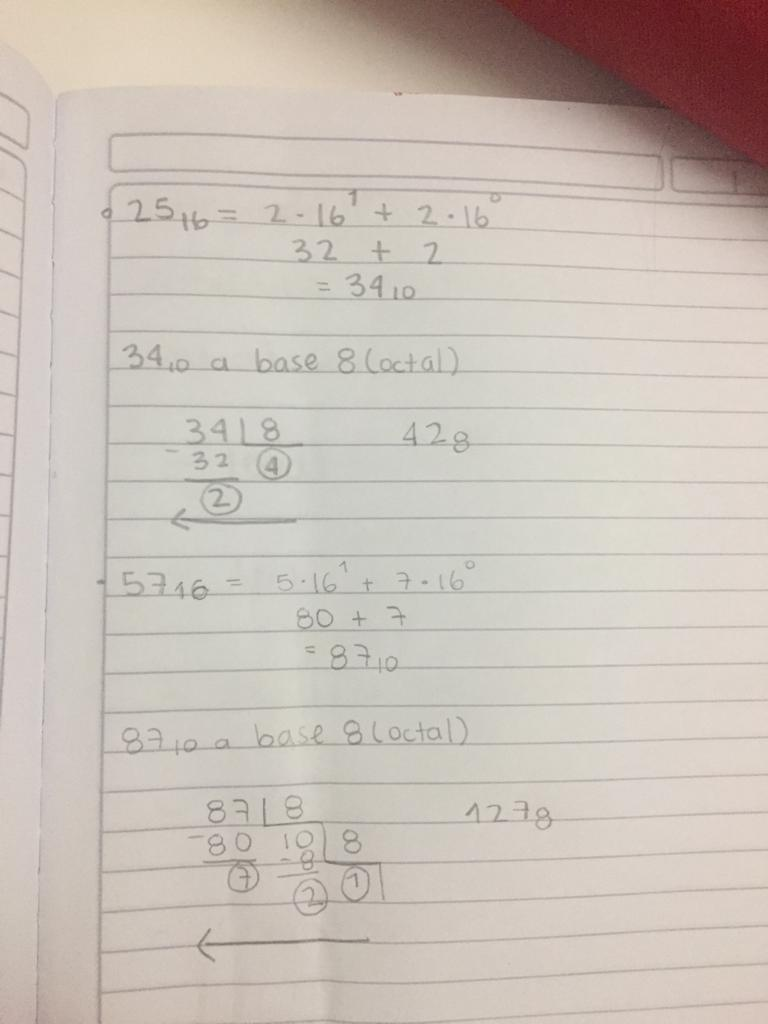 25₁₆ = 2·16¹ + 2·16⁰
32 + 2
= 34₁₀
34₁₀ a base 8 (octal)
34 | 8 42₈
-32 4
2
57₁₆ = 5·16¹ + 7·16⁰
80 + 7
= 87₁₀
87₁₀ a base 8 (octal)
87 | 8 127₈
-80 10 | 8
7 -8 1
2